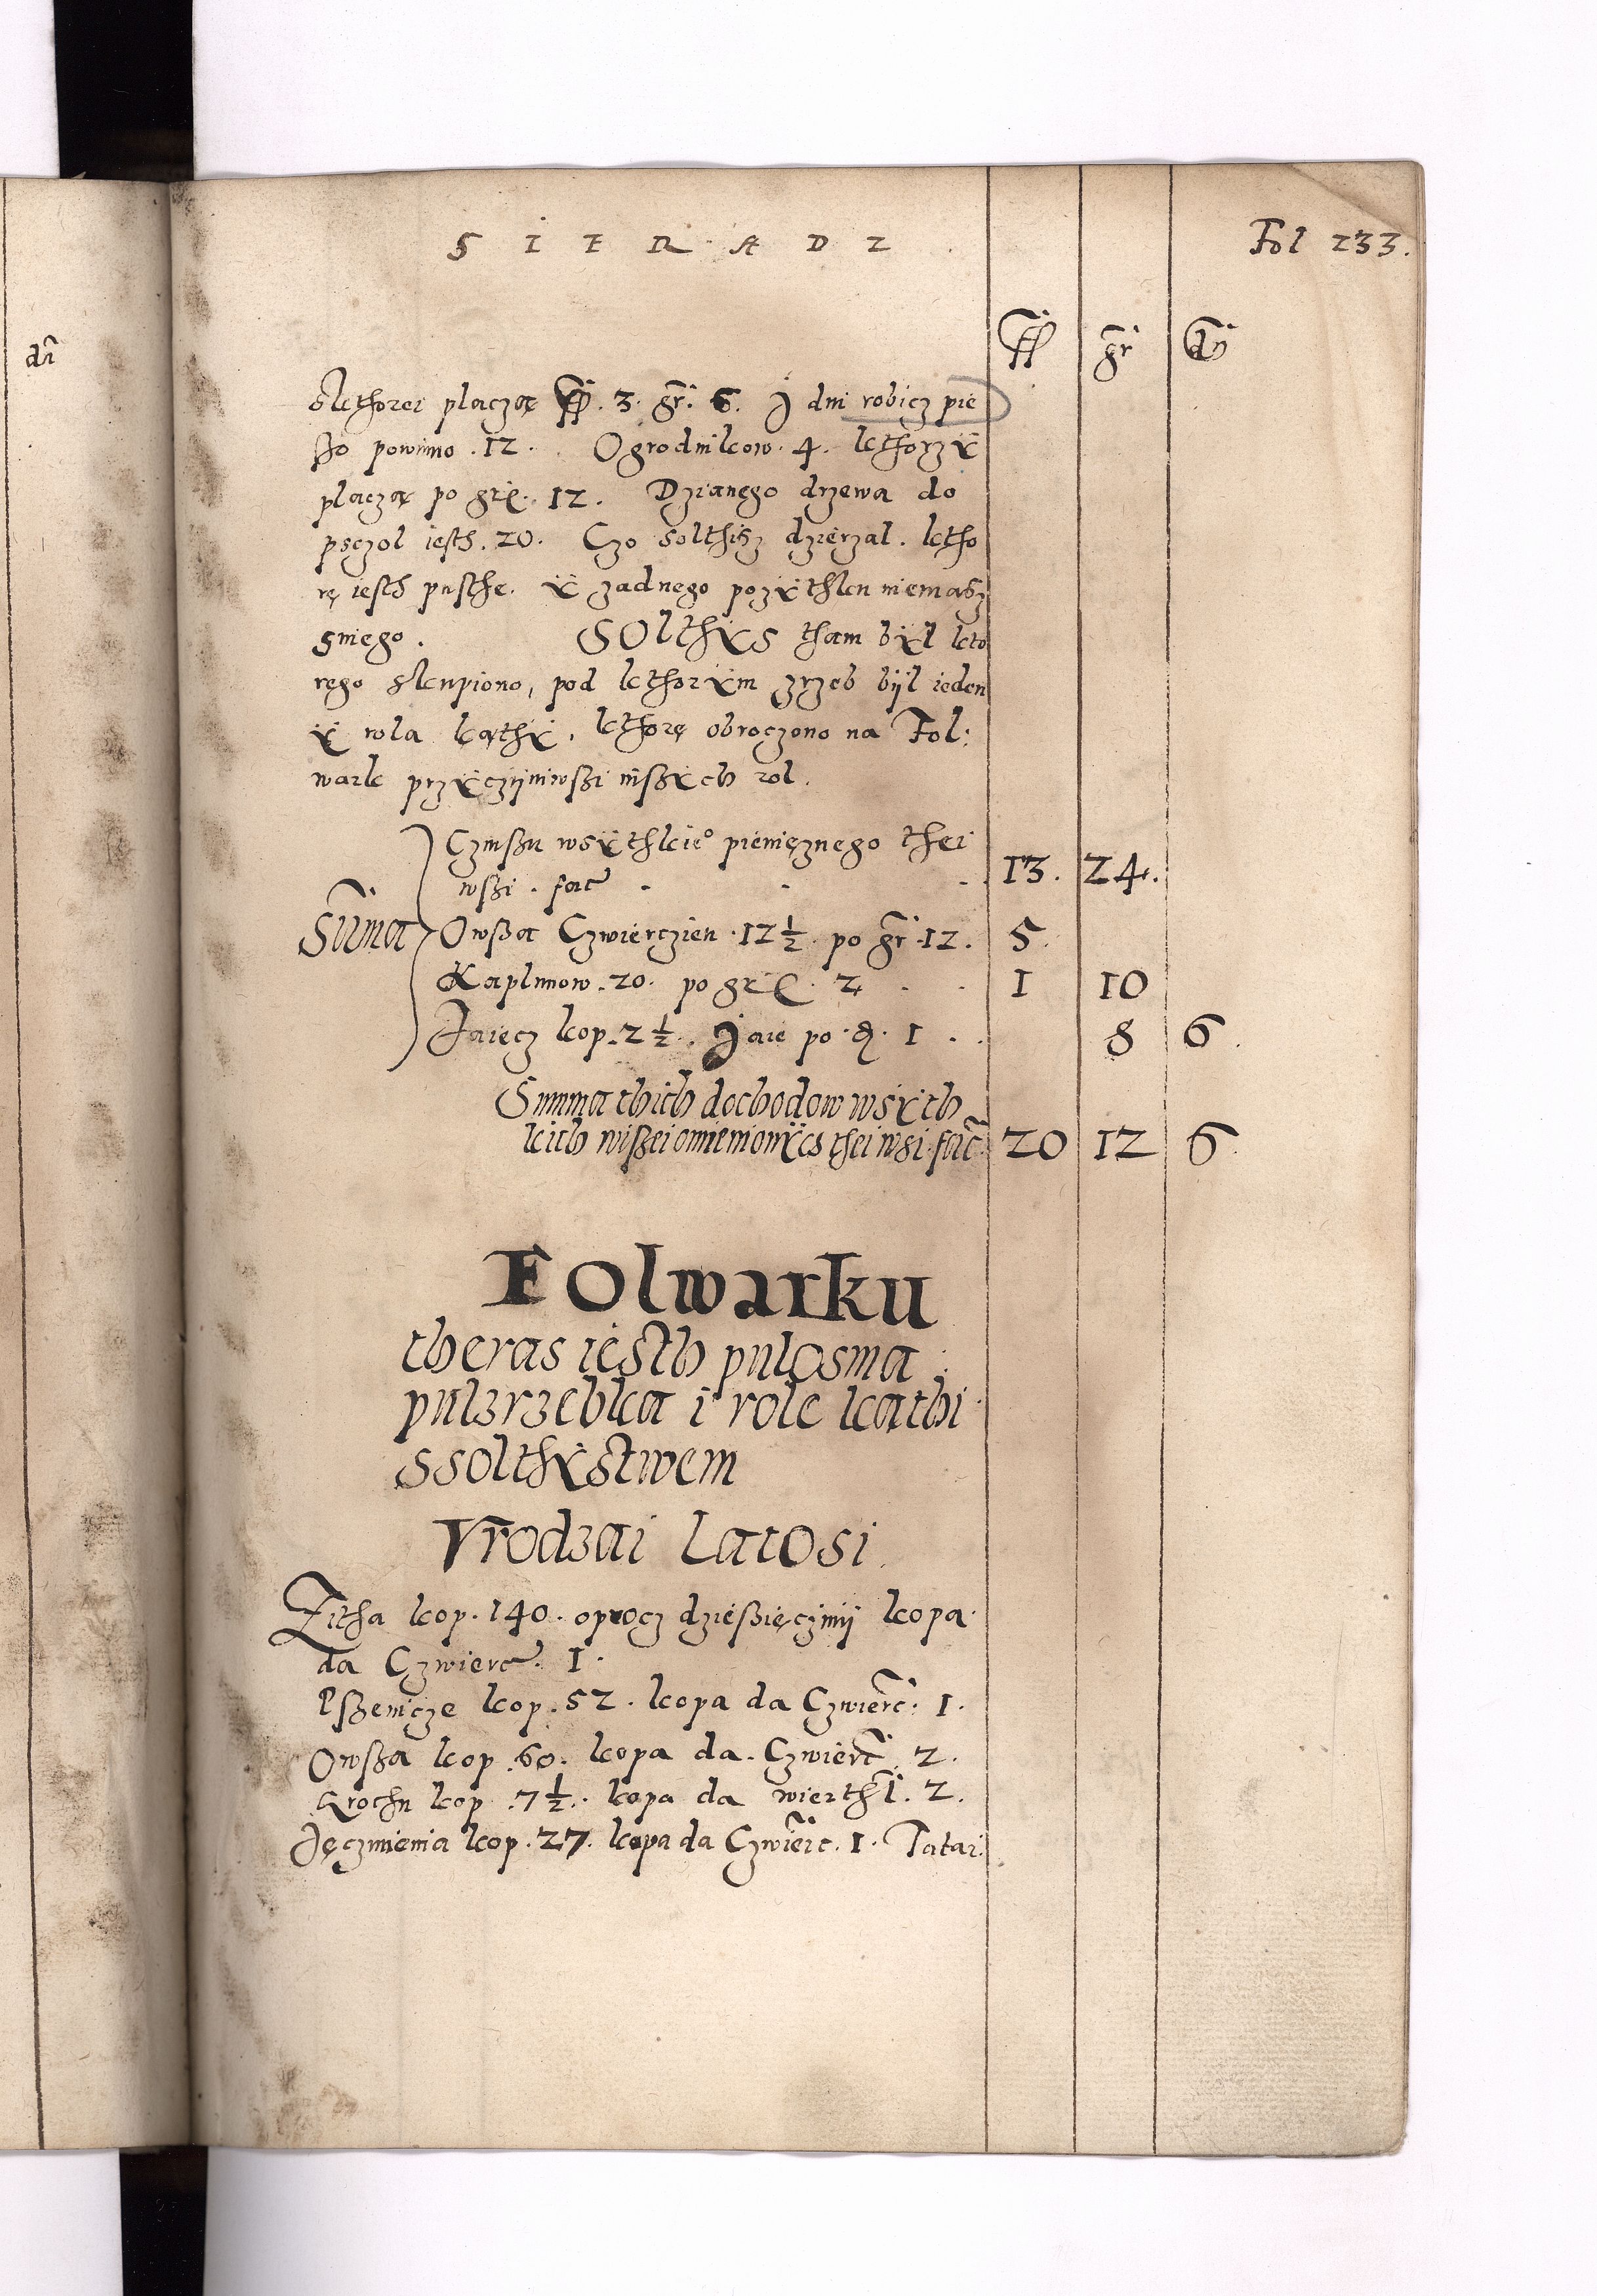 S I E R A D Z
Fol 233.
ff gr dn
dn
sktorei placzą ff. 3. gr. 6. J dni robicz pie
sso powinno .12. Ogrodnikow. 4. ktorzÿ
placzą po grs. 12. Dzianego drzewa do
psczol iesth. 20. Czo solthisz dzierzal. ktho
rę iesth pusthe. ÿ zadnego pozÿthku niemasz
snięgo. SOlthÿs tham bÿl kto
rego skupiono, pod kthorÿm zrzeb bijl ieden
ÿ rola kąthÿ, kthorę obroczono na Fol:
wark przÿczÿniwssi inssÿch rol.
Czinssu wsÿthkie° pienięznego thei
wssi. facit . . . 13. 24.
Suma
Owssa Czwierczien .12 1/2. po gr .12. 5.
Kaplunow .20. po grs. 2 . . 1 10
Jaiecz kop. 2 1/2. Jaie po .d. 1 . . 8 6.
Summa thich dochodow wsÿth
kich wissei omienionÿch thei wsi. facit 20 12 6.
Folwarku
theras iesth pulosma
pulzrzebka i role kathi
ssolthÿstwem
Vrodzai Latosi.
Zitha kop. 140. oprocz dziessięczinij kopa
da Czwierc. 1.
Pssenicze kop. 52. kopa da Czwierc: 1.
Owssa kop. 60. kopa da. Czwierc. 2.
Grochu kop .7 1/2. kopa da wierthl. 2.
Jęczmienia kop. 27. kopa da Czwierc. 1. Tatar.